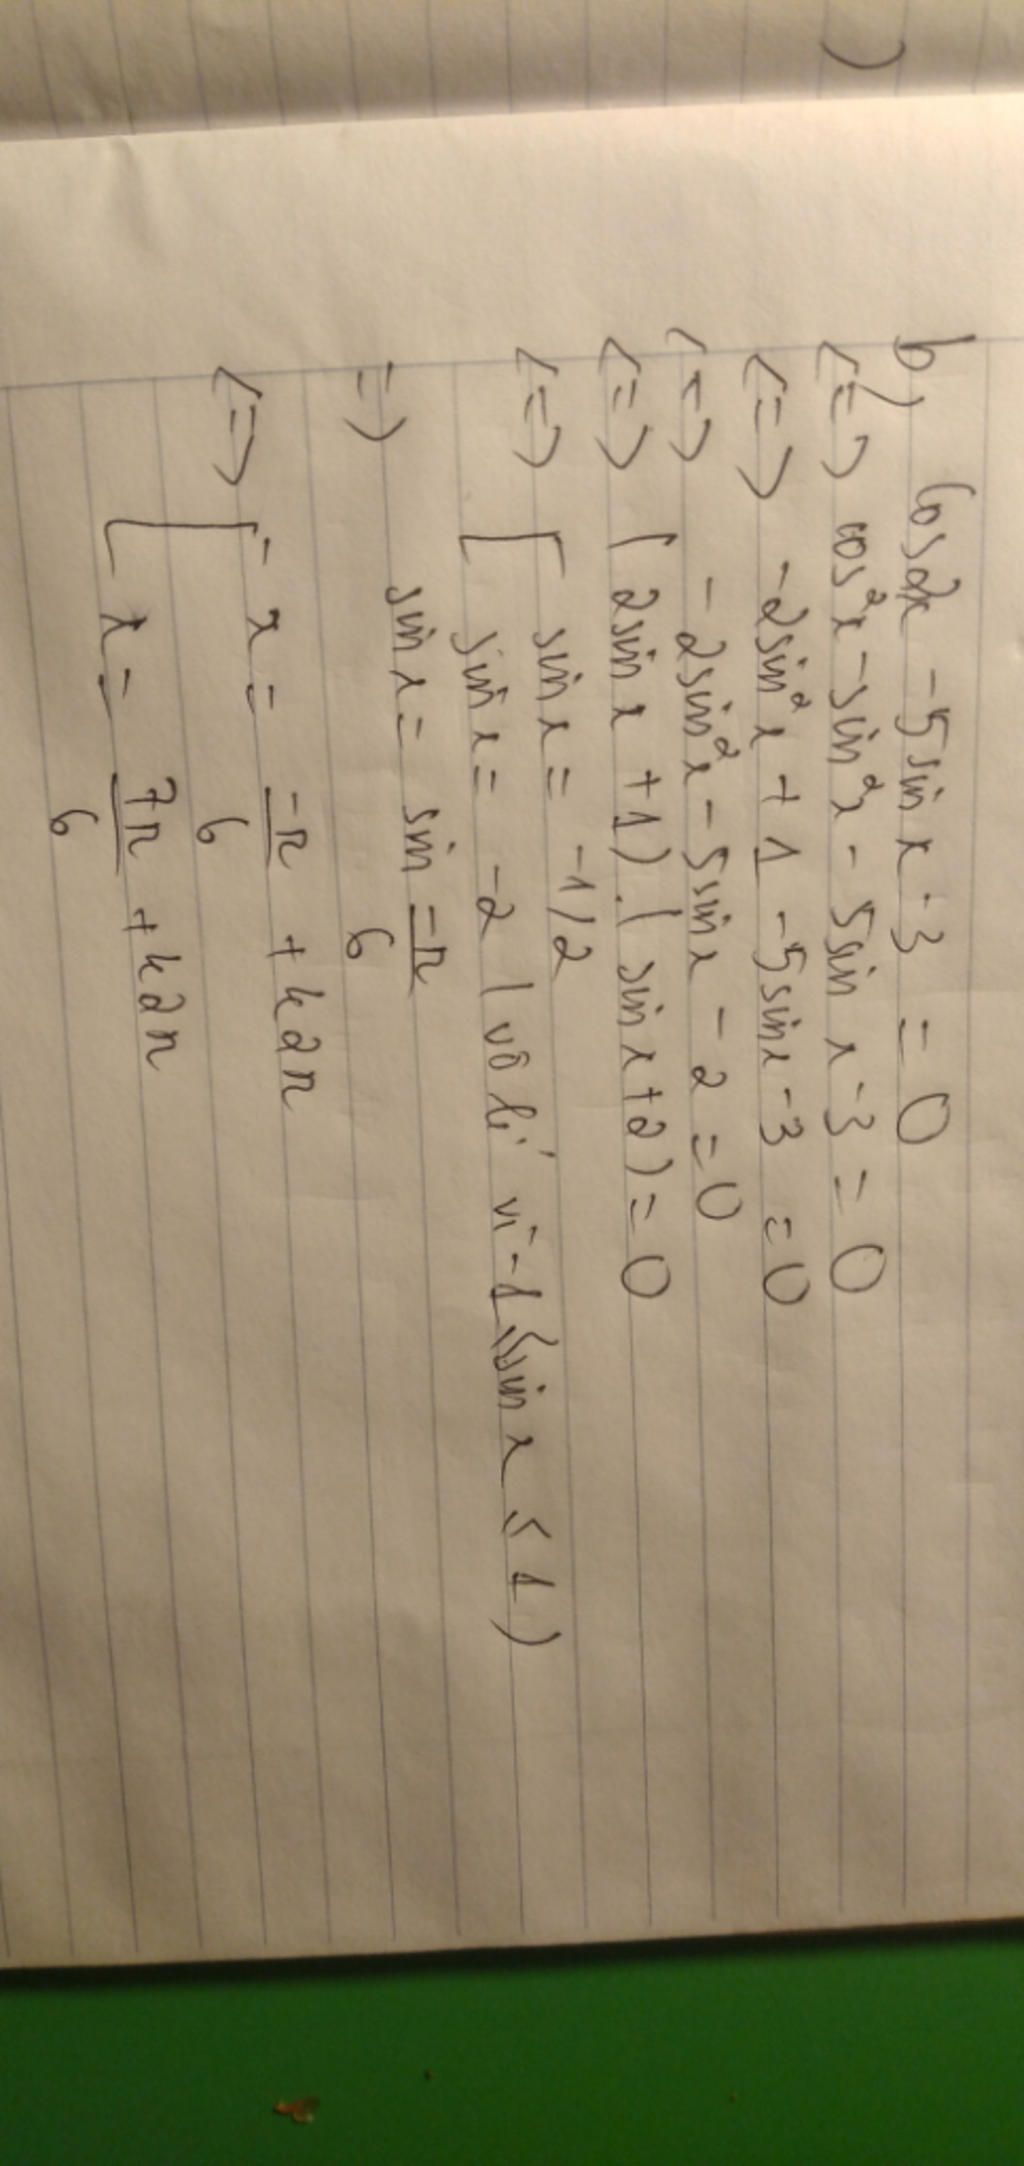 b) Cos2x - 5sin x - 3 = 0
<=> cos²x - sin²x - 5sin x - 3 = 0
<=> -2sin²x + 1 - 5sin x - 3 = 0
<=> - 2sin²x - 5sin x - 2 = 0
<=> (2sin x + 1).(sin x + 2) = 0
<=> [ sin x = -1/2
sin x = -2 (vô lí vì -1 ≤ sin x ≤ 1)
=> sin x = sin -π/6
<=> [ x = -π/6 + k2π
x = 7π/6 + k2π